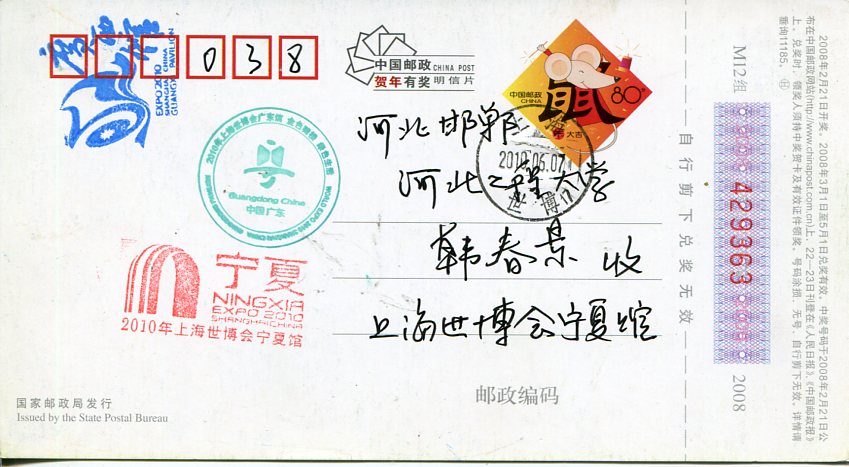 038
EXPO2010
SHANGHAI CHINA
GUANGXI PAVILION
中国邮政 CHINA POST
贺年有奖 明信片
中国邮政
CHINA
鼠
80分
大吉
2010.06.07
世博
2010年上海世博会广东馆
Guangdong China
中国广东
宁夏
NINGXIA
EXPO 2010
SHANGHAI CHINA
2010年上海世博会宁夏馆
河北邯郸
河北工程大学
韩春景 收
上海世博会宁夏馆
邮政编码
国家邮政局发行
Issued by the State Postal Bureau
自行剪下兑奖无效
M12组
429363
2008
2008年2月21日开奖。2008年3月1日至5月1日兑奖有效。中奖号码于2008年2月21日公
布在中国邮政网站(http://www.chinapost.com.cn)上，22—23日刊登在《人民日报》、《中国邮政报》
上。兑奖时，领奖人须持中奖贺卡及有效证件领奖。号码涂损、无号、自行剪下无效。详情请
垂询11185。